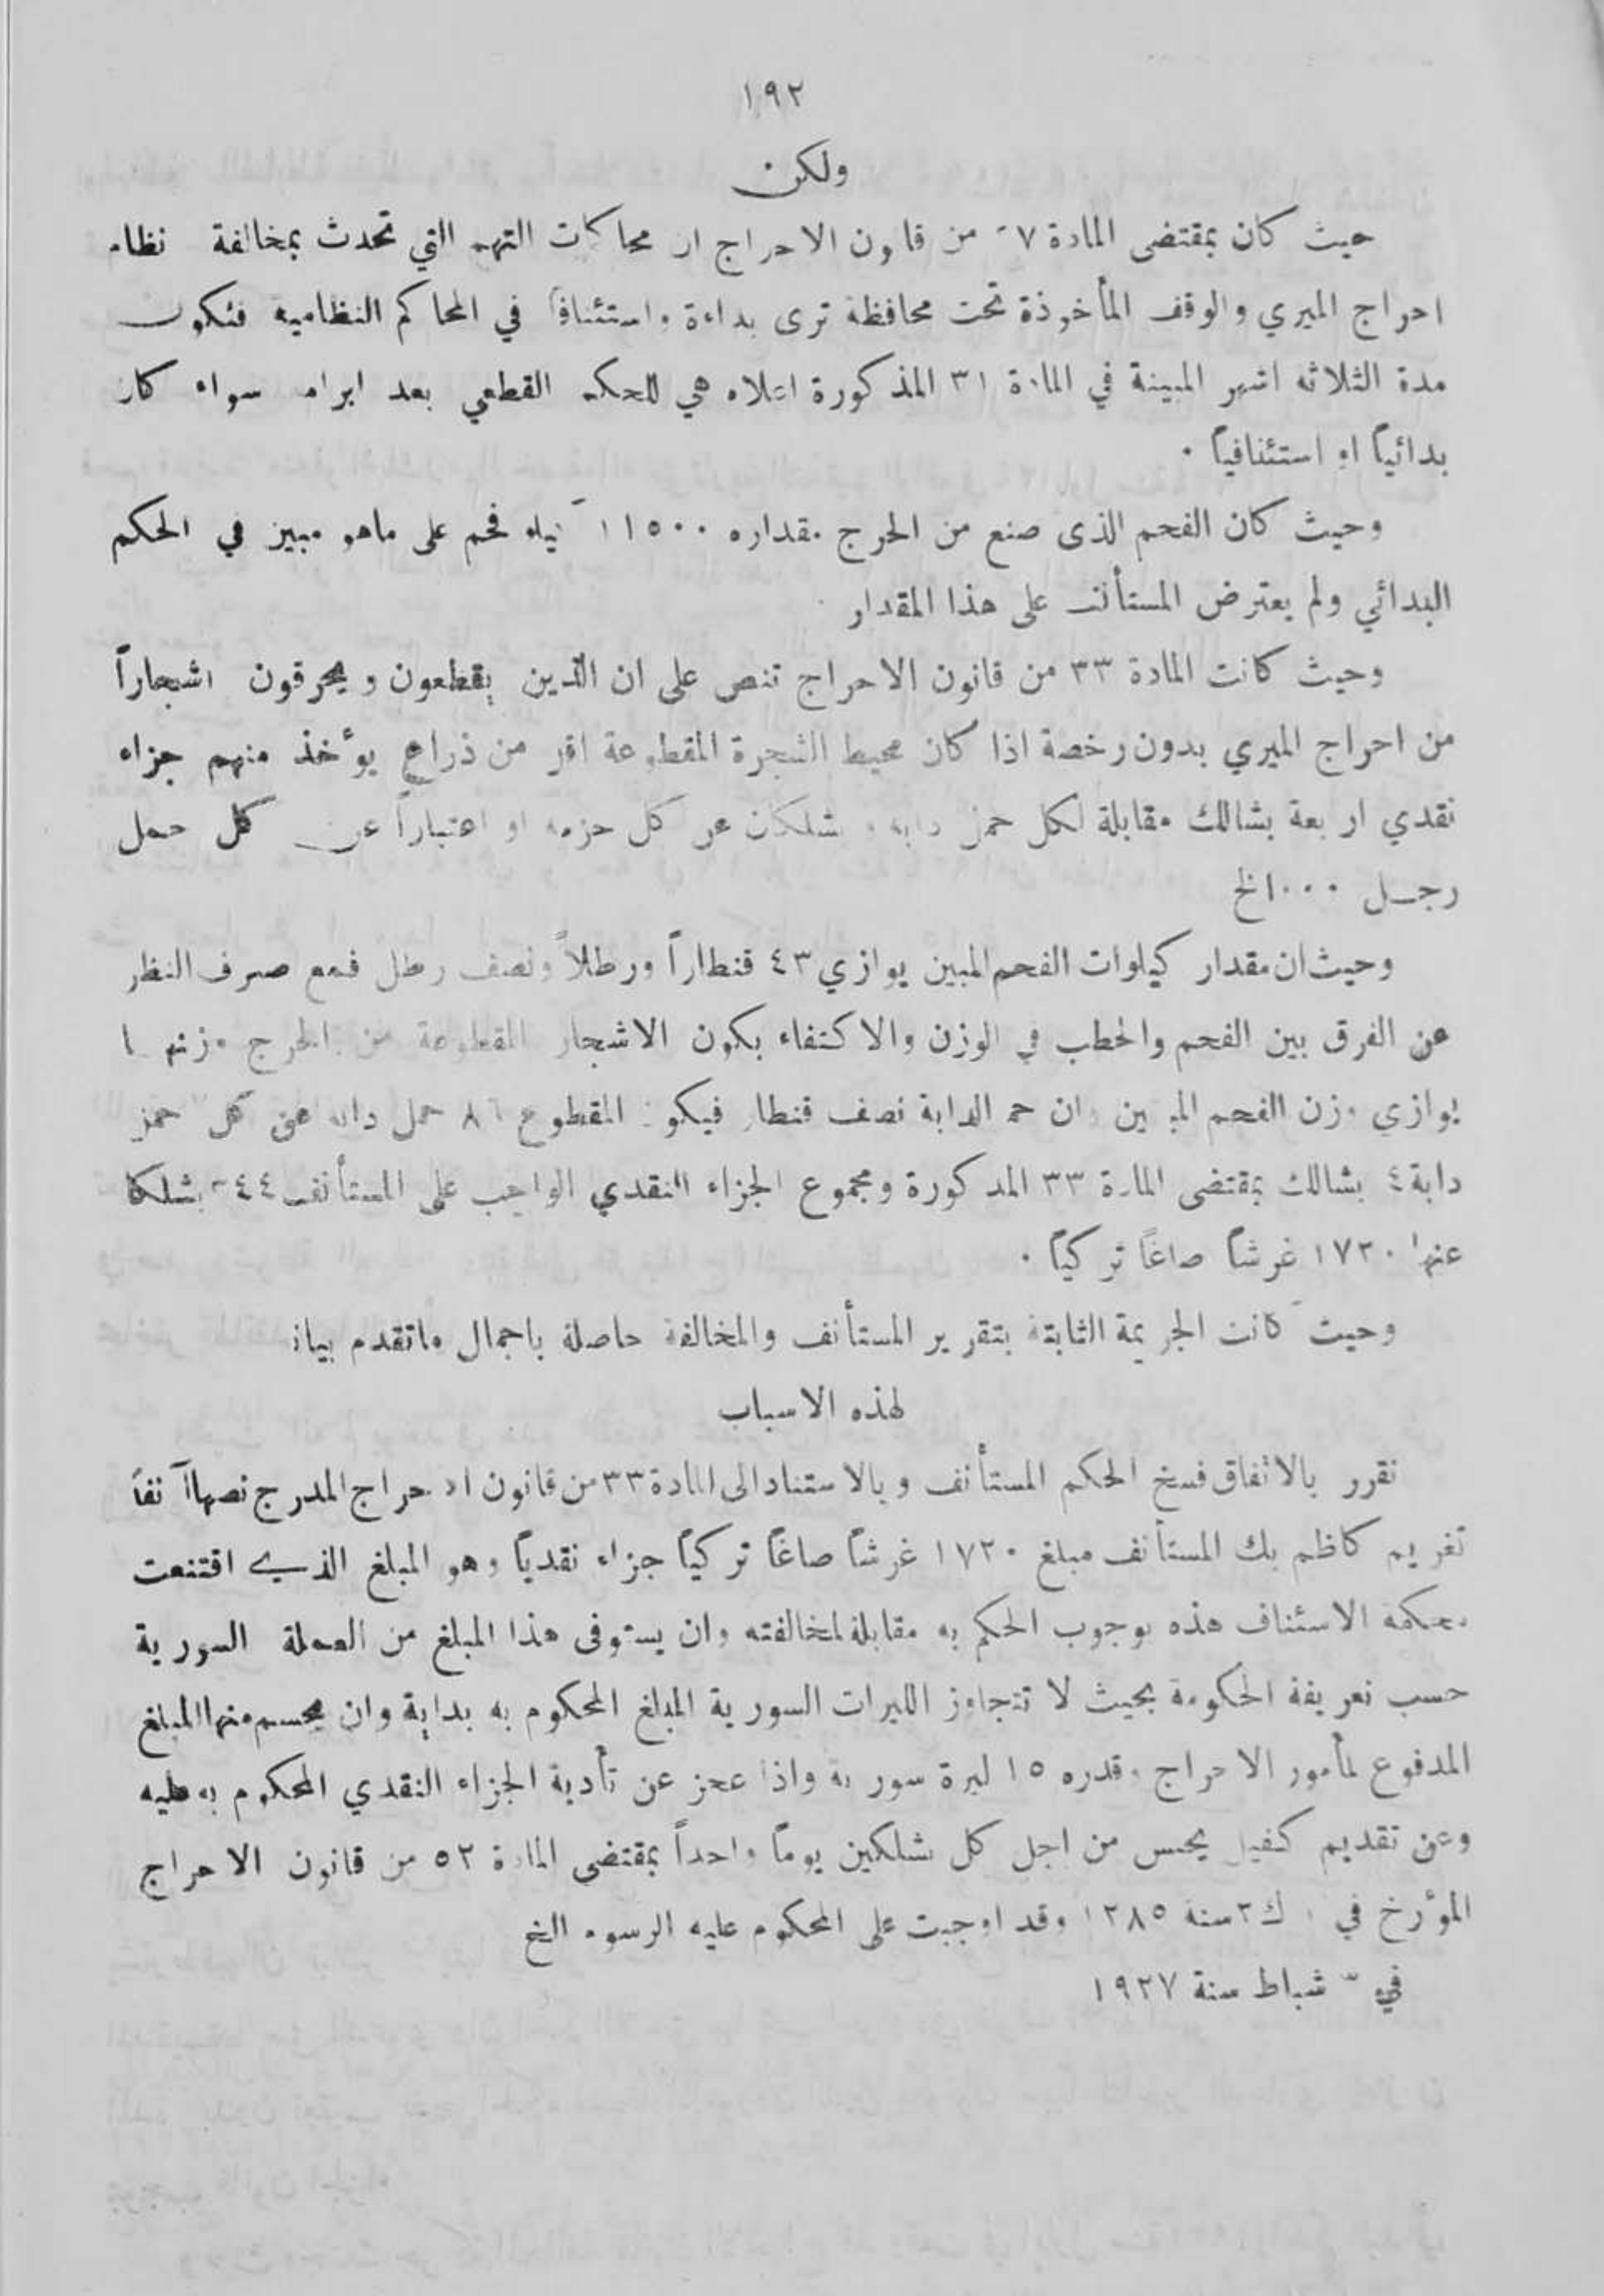 ١٩٢
ولكن
حيث كان بمقتضى المادة من قانون الاحراج ان محاكمات التهم التي تحدث بمخالفة نظام
احراج الميري والوقف المأخوذة تحت محافظة ترى بداءة واستئنافاً في المحاكم النظامية فتكون
مدة الثلاثه اشهر المبينة في المادة ٣١ المذكورة اعلاه هي للحكم القطعي بعد ابرامه سواء كان
بدائياً او استئنافياً .
وحيث كان الفحم الذى صنع من الحرج مقداره ١١٥٠٠ كيلو فحم على ماهو مبين في الحكم
البدائي ولم يعترض المستأنف على هذا المقدار
وحيث كانت المادة ٣٣ من قانون الاحراج تنص على ان الذين يقطعون ويحرقون اشجاراً
من احراج الميري بدون رخصة اذا كان محيط الشجرة المقطوعة اقل من ذراع يؤخذ منهم جزاء
نقدي اربعة بشالك مقابلة لكل حمل دابة وبشلكان عن كل حزمه او اعتباراً عن كل حمل
رجل ٠٠٠ الخ
وحيث ان مقدار كيلوات الفحم المبين يوازي ٤٣ قنطاراً ورطلاً ونصف رطل فمع صرف النظر
عن الفرق بين الفحم والحطب في الوزن والاكتفاء بكون الاشجار المقطوعة من الحرج وزنها
يوازي وزن الفحم المبين وان حمل الدابة نصف قنطار فيكون المقطوع ٨٦ حمل دابه عن كل حمل
دابة ٤ بشالك بمقتضى المادة ٣٣ المذكورة ومجموع الجزاء النقدي الواجب على المستأنف ٣٤٤ بشلكا
عنها ١٧٢٠ غرشاً صاغاً تركياً .
وحيث كانت الجريمة الثابتة بتقرير المستأنف والمخالفة حاصلة باجمال ماتقدم بيانه
لهذه الاسباب
نقرر بالاتفاق فسخ الحكم المستأنف وبالاستناد الى المادة ٣٣ من قانون الاحراج المدرج نصها آنفاً
تغريم كاظم بك المستأنف مبلغ ١٧٢٠ غرشاً صاغاً تركياً جزاء نقدياً وهو المبلغ الذي اقتنعت
محكمة الاستئناف هذه بوجوب الحكم به مقابلة لمخالفته وان يستوفى هذا المبلغ من العملة السورية
حسب تعريفة الحكومة بحيث لا تتجاوز الليرات السورية المبلغ المحكوم به بداية وان يحسم منها المبلغ
المدفوع لمأمور الاحراج وقدره ١٥ ليرة سورية واذا عجز عن تأدية الجزاء النقدي المحكوم به عليه
وعن تقديم كفيل يحبس من اجل كل بشلكين يوماً واحداً بمقتضى المادة ٥٢ من قانون الاحراج
المؤرخ في ك٢ سنة ١٢٨٥ وقد اوجبت على المحكوم عليه الرسوم الخ
في شباط سنة ١٩٢٧